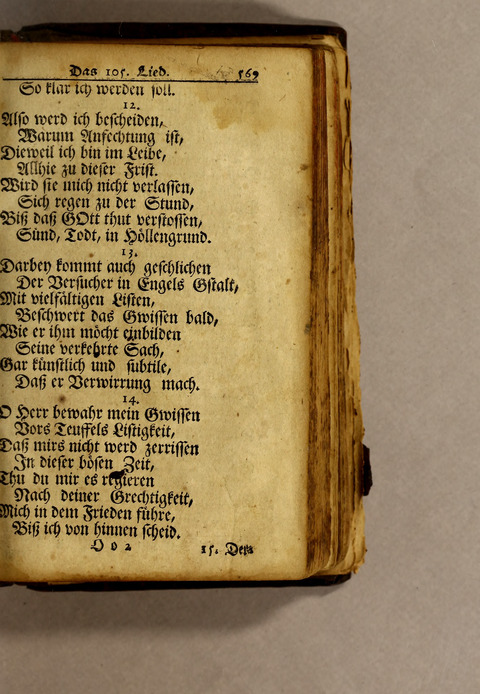 Das 105. Lied. 569
So klar ich werden soll.
12.
Also werd ich bescheiden,
Warum Anfechtung ist,
Dieweil ich bin im Leibe,
Allhie zu dieser Frist.
Wird sie mich nicht verlassen,
Sich regen zu der Stund,
Biß daß GOtt thut verstossen,
Sünd, Todt, in Höllengrund.
13.
Darbey kommt auch geschlichen
Der Versucher in Engels Gstalt,
Mit vielfältigen Listen,
Beschwert das Gwissen bald,
Wie er ihm möcht einbilden
Seine verkehrte Sach,
Gar künstlich und subtile,
Daß er Verwirrung mach.
14.
O Herr bewahr mein Gwissen
Vors Teuffels Listigkeit,
Daß mirs nicht werd zerrissen
In dieser bösen Zeit,
Thu du mir es regieren
Nach deiner Grechtigkeit,
Mich in dem Frieden führe,
Biß ich von hinnen scheid.
O o 2 15. Dera